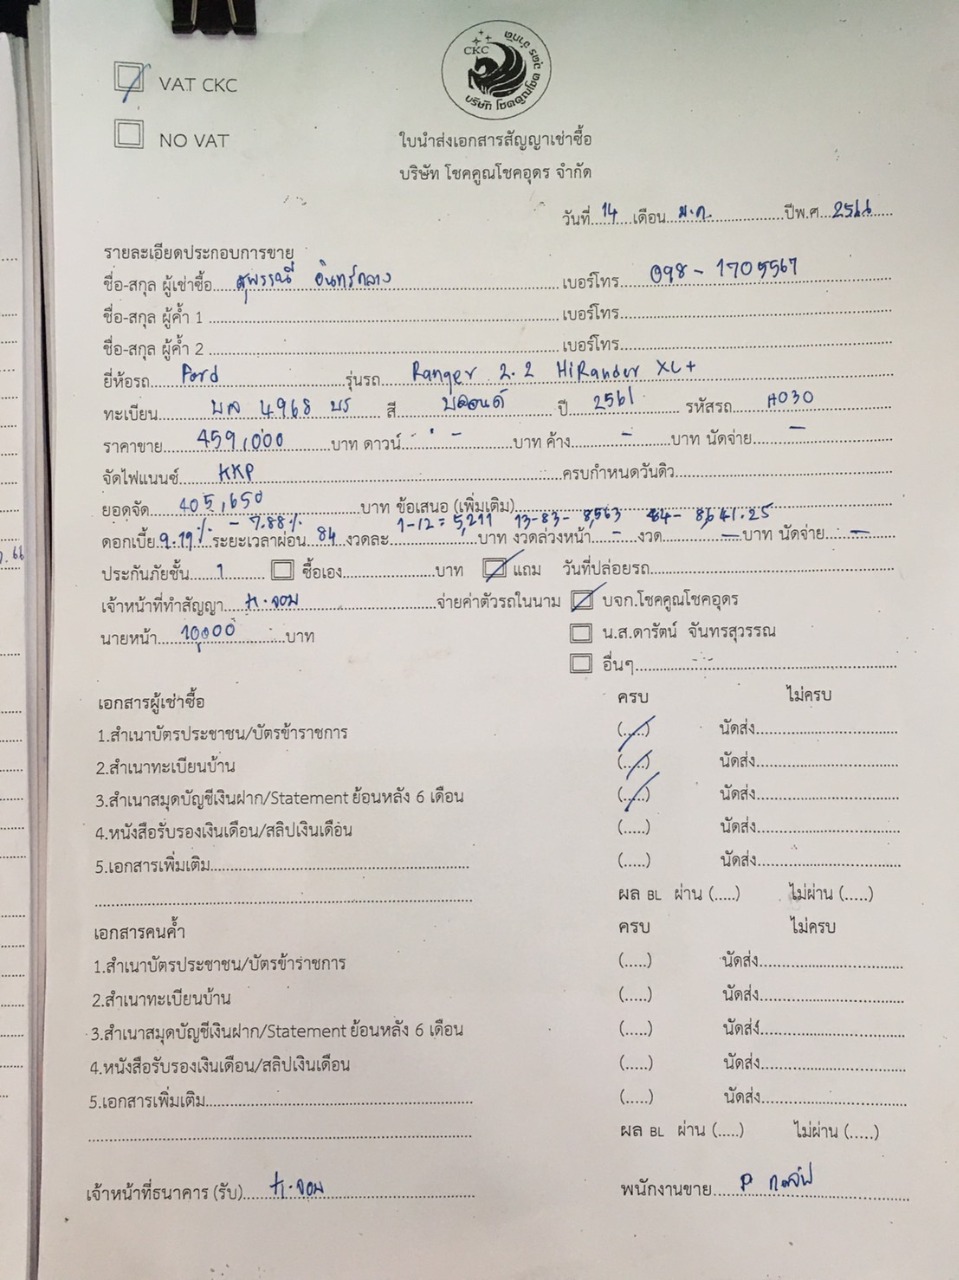 CKC
บริษัท โชคคูณโชค อุดร จำกัด
VAT CKC
NO VAT
ใบนำส่งเอกสารสัญญาเช่าซื้อ
บริษัท โชคคูณโชคอุดร จำกัด
วันที่ 14 เดือน ม.ค. ปีพ.ศ. 2566
รายละเอียดประกอบการขาย
ชื่อ-สกุล ผู้เช่าซื้อ สุพรรณี อินทร์กลาง เบอร์โทร 098-1705567
ชื่อ-สกุล ผู้ค้ำ 1 เบอร์โทร
ชื่อ-สกุล ผู้ค้ำ 2 เบอร์โทร
ยี่ห้อรถ Ford รุ่นรถ Ranger 2.2 HiRander XL+
ทะเบียน 4968 บร สี บลอนด์ ปี 2561 รหัสรถ A030
ราคาขาย 459,000 บาท ดาวน์ - บาท ค้าง - บาท นัดจ่าย -
จัดไฟแนนซ์ KKP ครบกำหนดวันดิว
ยอดจัด 405,650 บาท ข้อเสนอ (เพิ่มเติม)
1-12 = 5,211 13-83 - 8,563 84 - 8,641.25
ดอกเบี้ย 9.19% - 7.88% ระยะเวลาผ่อน 84 งวดละ บาท งวดล่วงหน้า - งวด - บาท นัดจ่าย -
ประกันภัยชั้น 1 ซื้อเอง บาท แถม วันที่ปล่อยรถ
เจ้าหน้าที่ทำสัญญา K.จอม จ่ายค่าตัวรถในนาม บจก.โชคคูณโชคอุดร
นายหน้า 10,000 บาท น.ส.ดารัตน์ จันทรสุวรรณ
อื่นๆ
เอกสารผู้เช่าซื้อ ครบ ไม่ครบ
1.สำเนาบัตรประชาชน/บัตรข้าราชการ (.....) นัดส่ง
2.สำเนาทะเบียนบ้าน (.....) นัดส่ง
3.สำเนาสมุดบัญชีเงินฝาก/Statement ย้อนหลัง 6 เดือน (.....) นัดส่ง
4.หนังสือรับรองเงินเดือน/สลิปเงินเดือน (.....) นัดส่ง
5.เอกสารเพิ่มเติม (.....) นัดส่ง
ผล BL ผ่าน (.....) ไม่ผ่าน (.....)
เอกสารคนค้ำ ครบ ไม่ครบ
1.สำเนาบัตรประชาชน/บัตรข้าราชการ (.....) นัดส่ง
2.สำเนาทะเบียนบ้าน (.....) นัดส่ง
3.สำเนาสมุดบัญชีเงินฝาก/Statement ย้อนหลัง 6 เดือน (.....) นัดส่ง
4.หนังสือรับรองเงินเดือน/สลิปเงินเดือน (.....) นัดส่ง
5.เอกสารเพิ่มเติม (.....) นัดส่ง
ผล BL ผ่าน (.....) ไม่ผ่าน (.....)
เจ้าหน้าที่ธนาคาร (รับ) K.จอม พนักงานขาย P